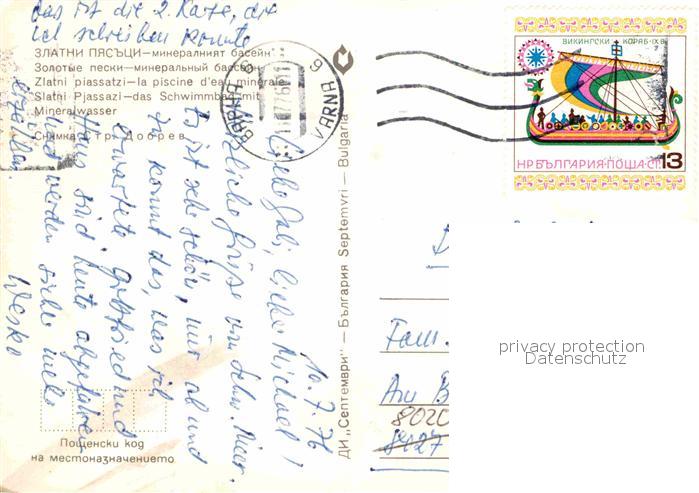 das ist die 2. Karte, die
ich schreiben konnte
ЗЛАТНИ ПЯСЪЦИ—минералният басейн
Золотые пески—минеральный бассейн
Zlatni piassatzi—la piscine d'eau minérale
Slatni Pjassazi—das Schwimmbad mit
Mineralwasser
Снимка Стр. Добрев
10. 7. 76
Liebe Gabi, lieber Michael!
herzliche Grüße vom Schw. Meer.
Es ist sehr schön, nur ab und
zu kommt das, was ich
erwartete. Gottfried und
sind heute abgefahren
werden
Wesko
Пощенски код
на местоназначението
ДИ „Септември" — България Septemvri — Bulgaria
ВАРНА 9
VARNA 9
ВИКИНГСКИ КОРАБ·IX В.
НР БЪЛГАРИЯ·ПОЩА·СТ. 13
Fam.
An
8020
8027
privacy protection
Datenschutz